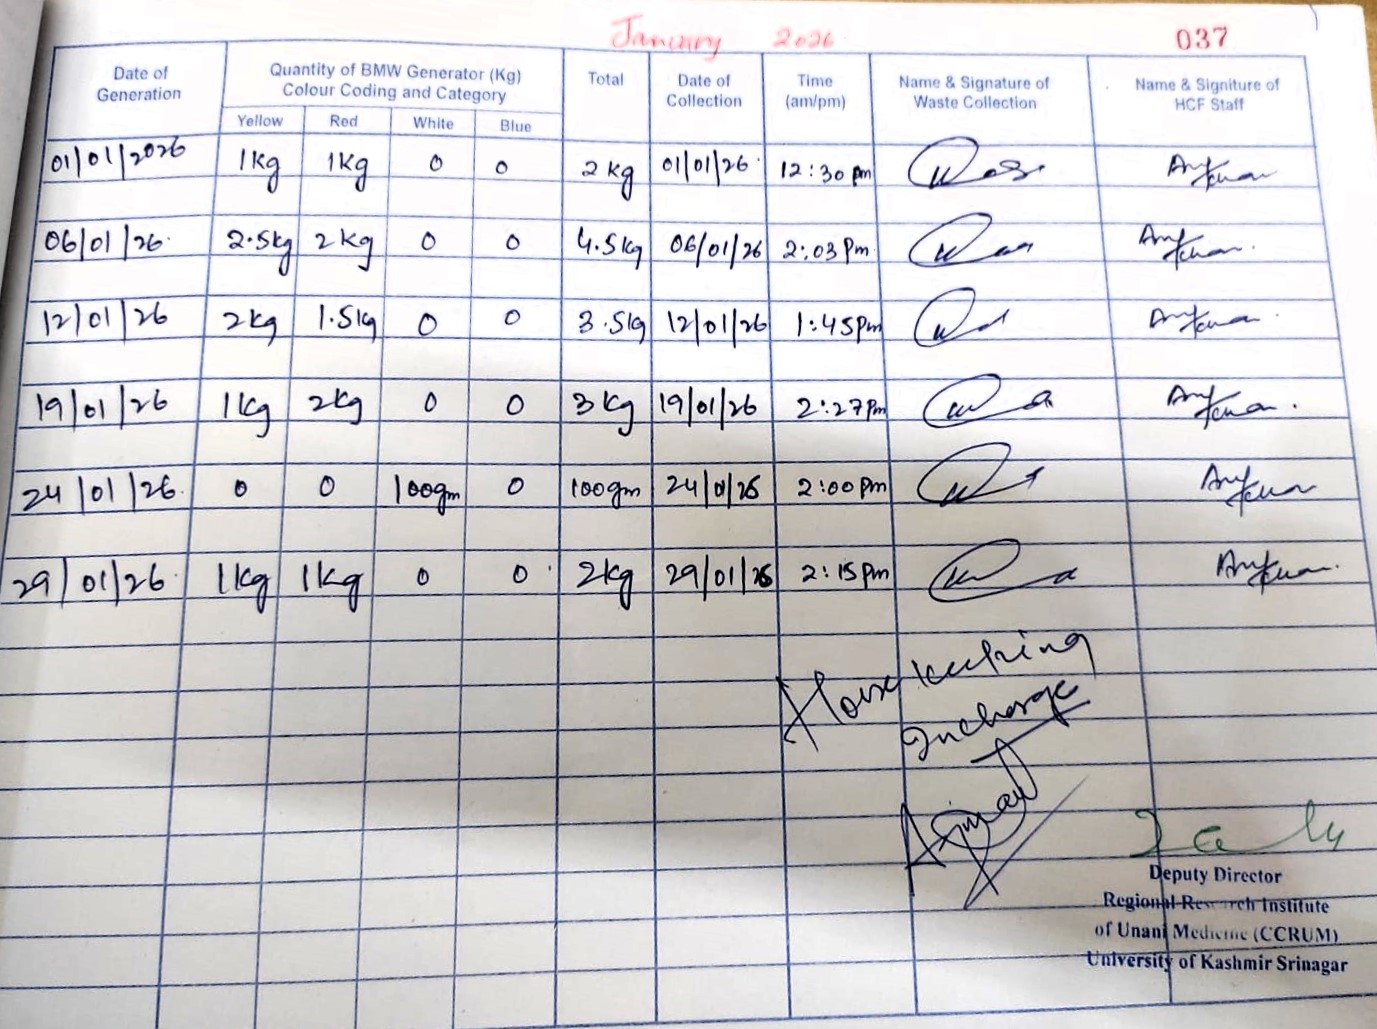 January 2026
037
Date of Generation Quantity of BMW Generator (Kg) Colour Coding and Category Total Date of Collection Time (am/pm) Name & Signature of Waste Collection Name & Signiture of HCF Staff
Yellow Red White Blue
01/01/2026 1Kg 1Kg 0 0 2 kg 01/01/26 12:30 pm
06/01/26 2.5kg 2 kg 0 0 4.5kg 06/01/26 2:03 Pm
12/01/26 2kg 1.5kg 0 0 3.5kg 12/01/26 1:45Pm
19/01/26 1kg 2kg 0 0 3 Kg 19/01/26 2:27Pm
24/01/26 0 0 100gm 0 100gm 24/01/26 2:00 Pm
29/01/26 1kg 1kg 0 0 2kg 29/01/26 2:15 Pm
House keeping
Incharge
Deputy Director
Regional Research Institute
of Unani Medicine (CCRUM)
University of Kashmir Srinagar